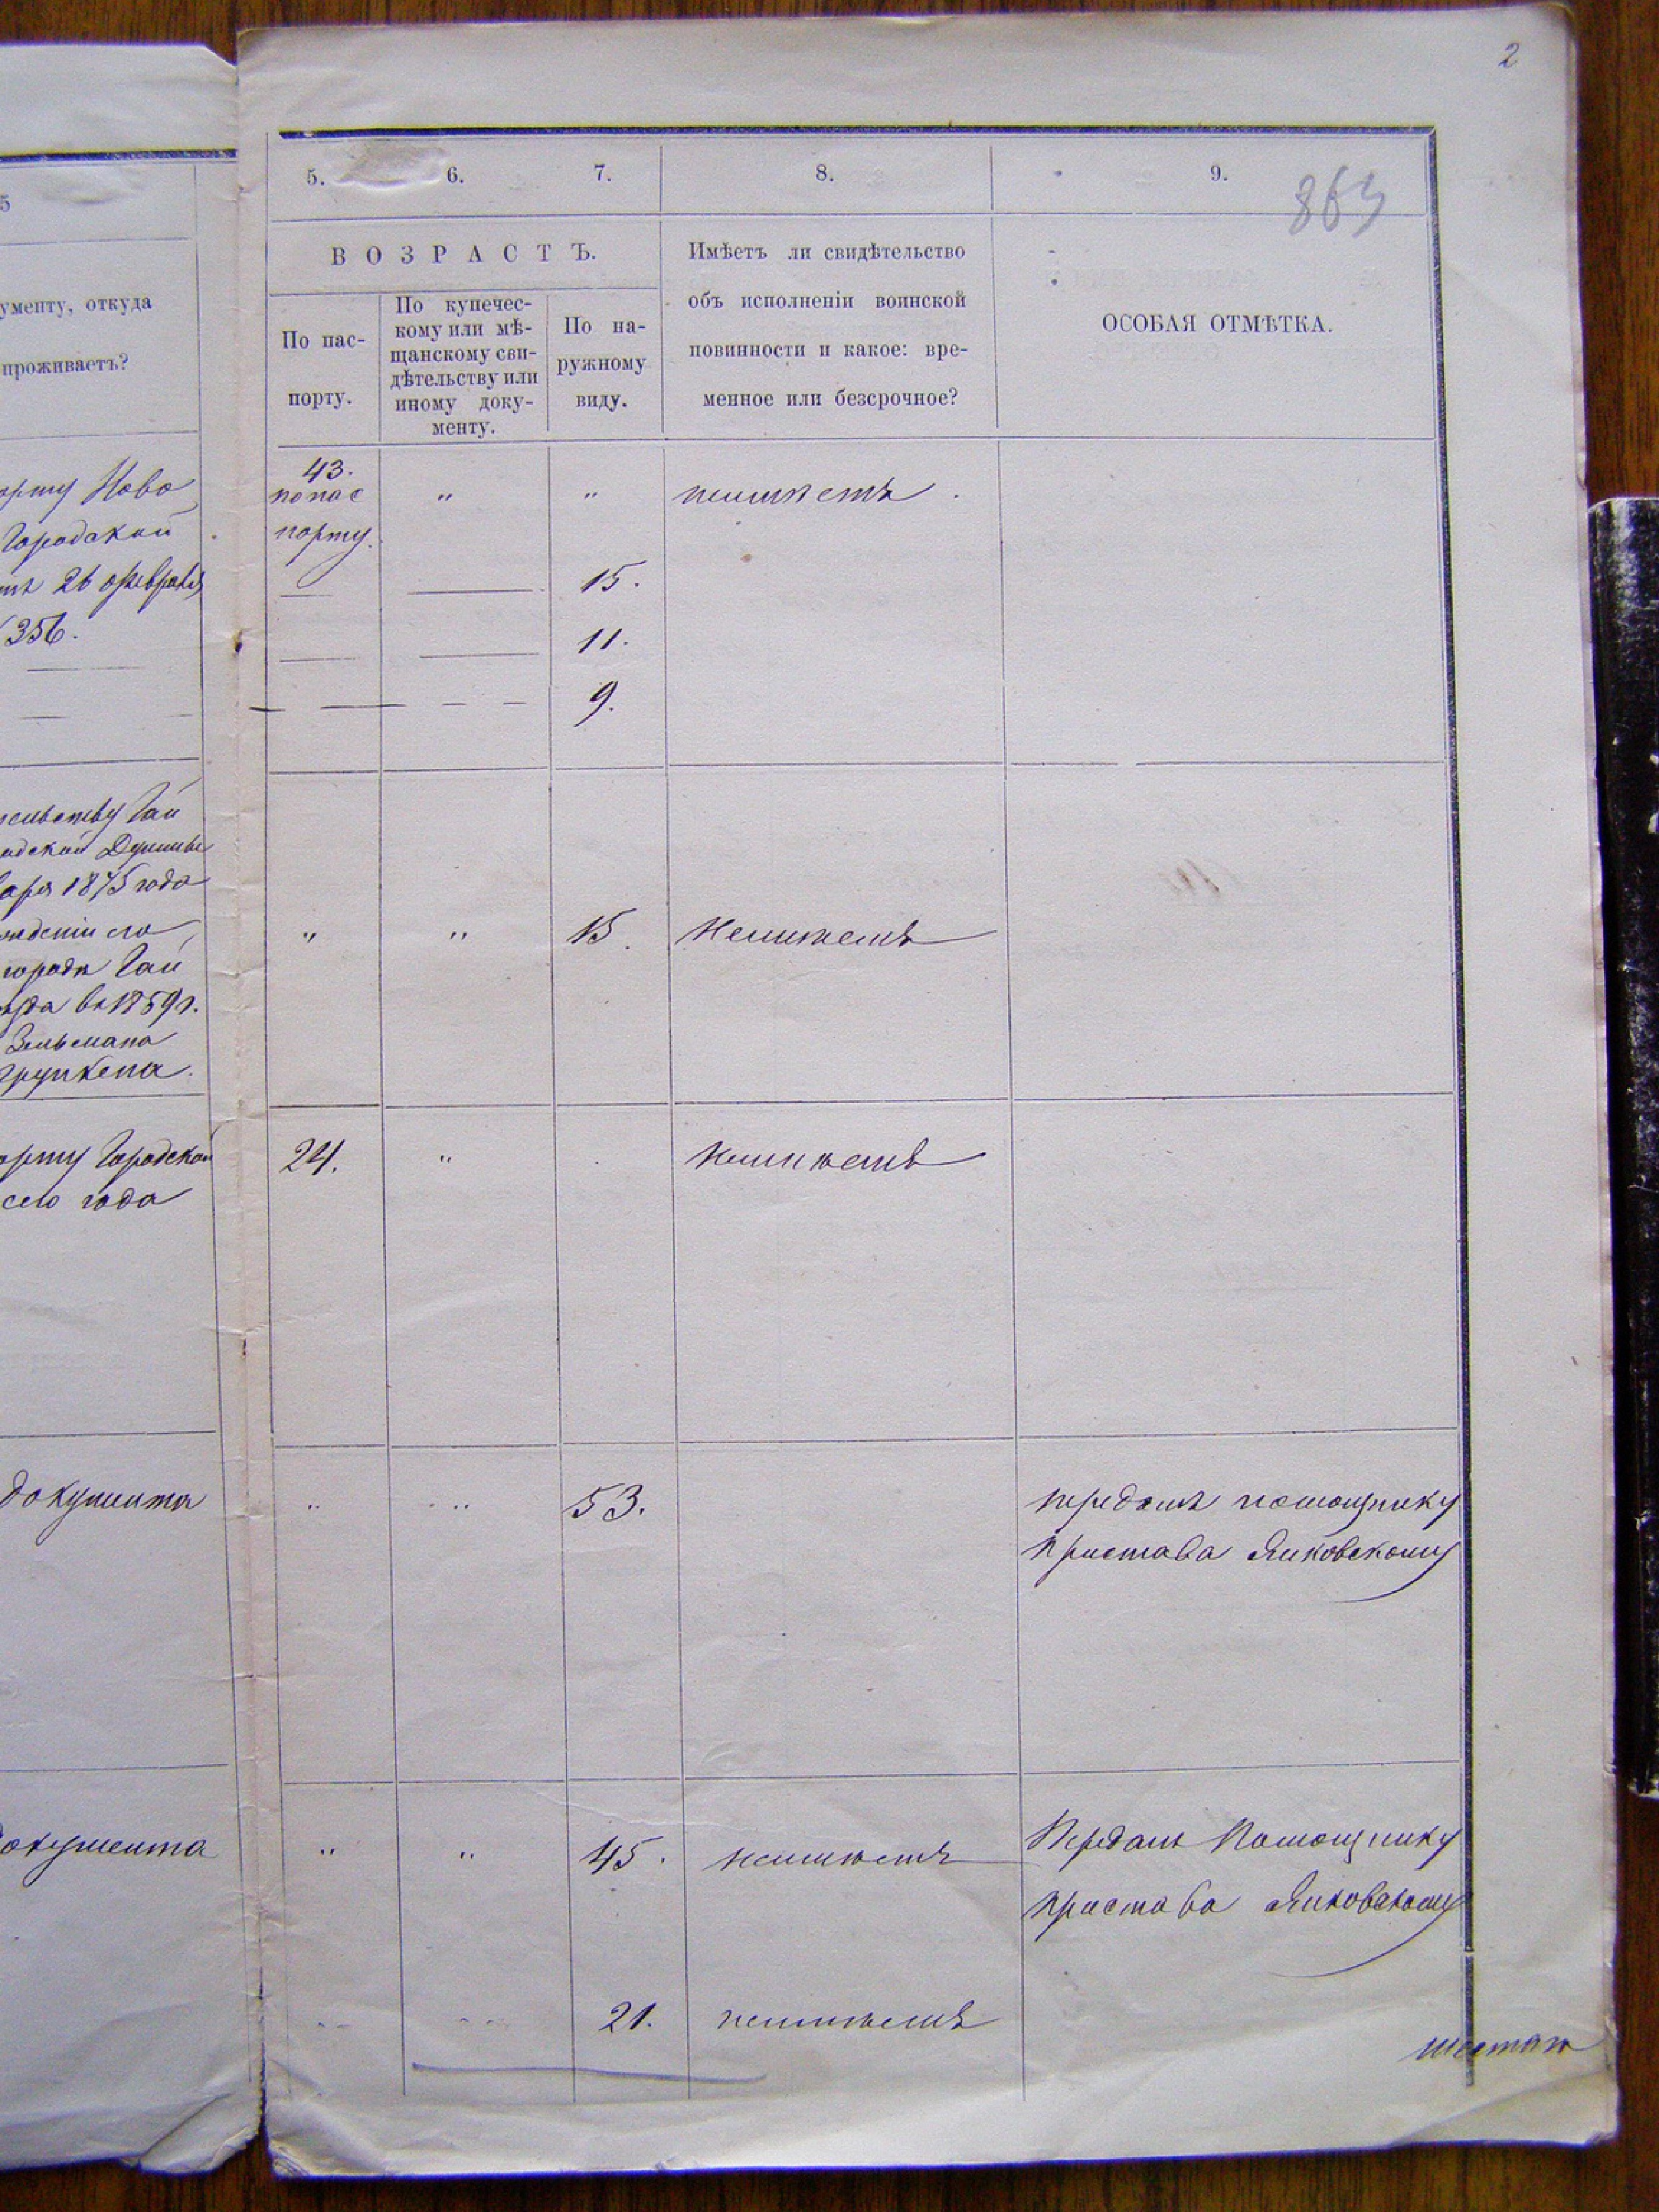 2
5
ументу, откуда
проживаетъ?
Ново
Городской
26 февраля
356.
Гай
Думы
1875 года
города Гай
въ 1859 г.
Зельмана
Городской
сего года
документа
документа
5. 6. 7. 8. 9.
863
ВОЗРАСТЪ.
По пас-
порту.
По купечес-
кому или мѣ-
щанскому сви-
дѣтельству или
иному доку-
менту.
По на-
ружному
виду.
Имѣетъ ли свидѣтельство
объ исполненіи воинской
повинности и какое: вре-
менное или безсрочное?
ОСОБАЯ ОТМѢТКА.
43.
по пас " " неимѣетъ.
порту.
— — 15.
— — 11.
— — 9.
" " 15. Неимѣетъ
24. " неимѣетъ
" " 53. переданъ помощнику
пристава Янковскому
" " 45. неимѣетъ Переданъ Помощнику
пристава Янковскому
" " 21. неимѣетъ